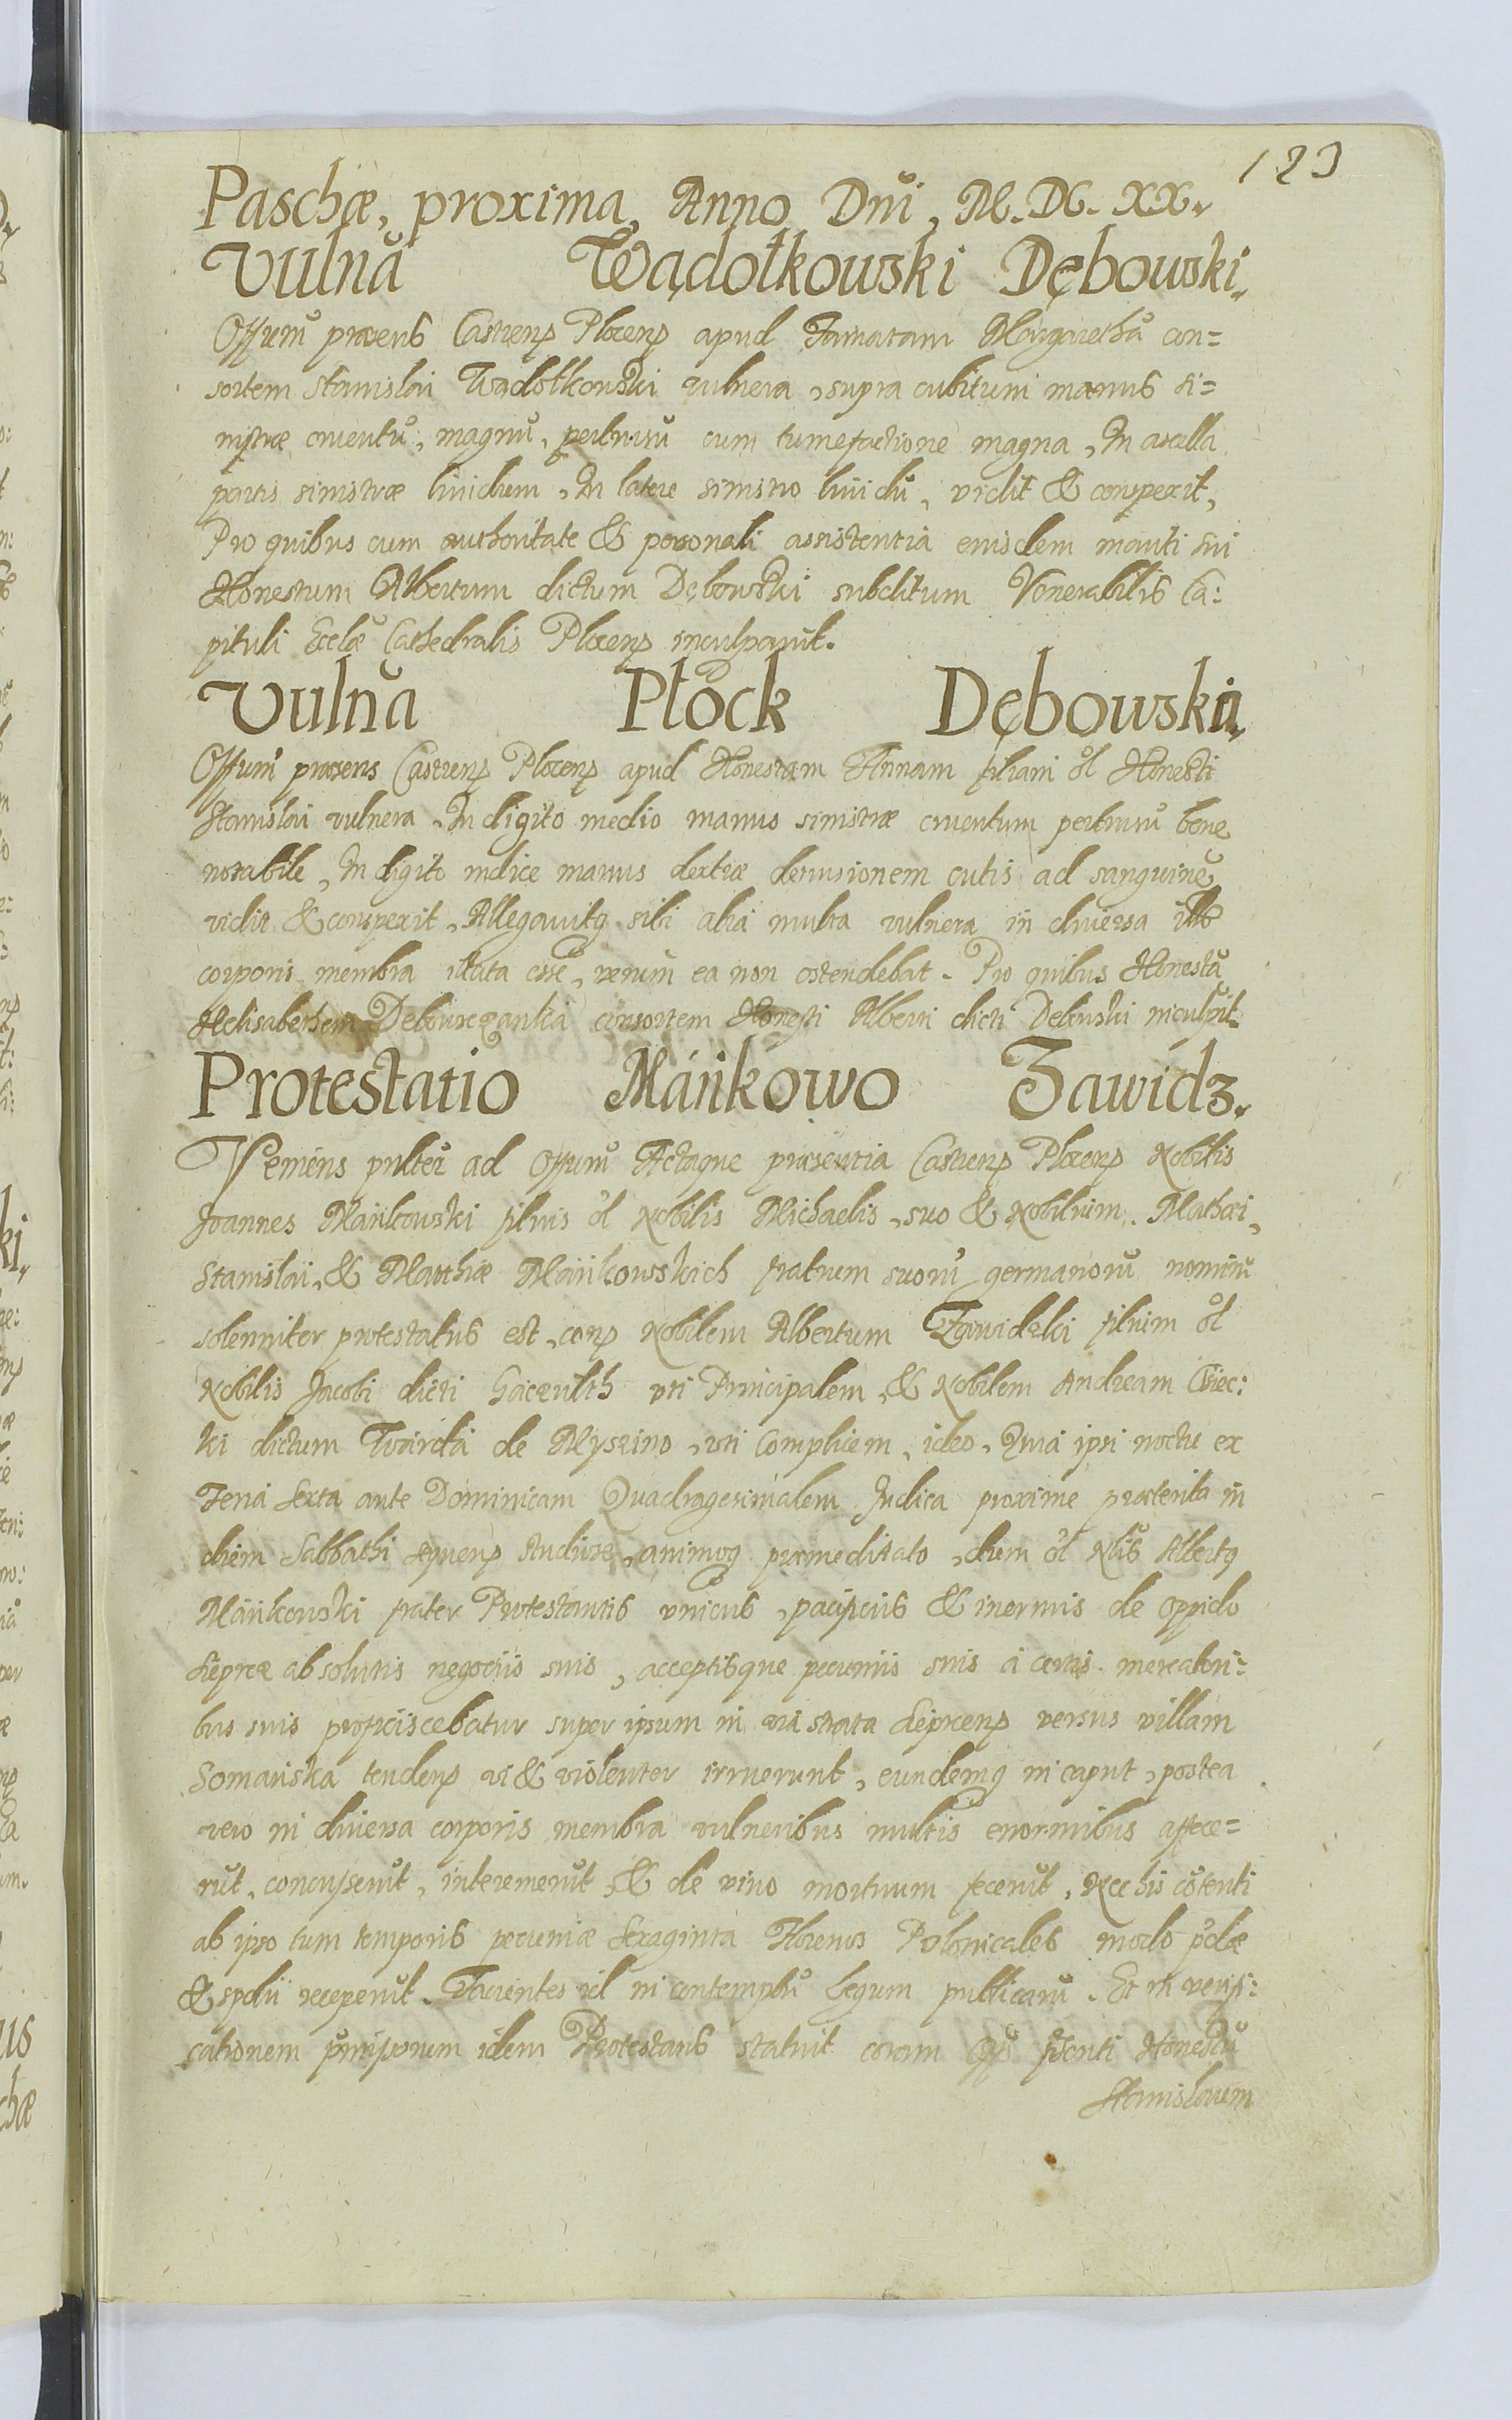 123
Paschæ, proxima, Anno Dni, M.DC.XX.
Vulnā Wądołkowski Dębowski.
Offium præsens Castrens Plocens apud Famatam Margarethā con=
sortem Stanislai Wądołkowski vulnera, supra cubitum manus si=
nistræ cruentū, magnū, pertusū cum tumefactione magna, In ascella
partis sinistræ liuidum, In latere sinistro liuidū, vidit & conspexit,
Pro quibus cum authoritate & personali assistentia eiusdem mariti sui
Honestum Albertum dictum Dębowski subditum Venerabilis Ca:
pituli Ecclæ Cathedralis Plocens inculpauit.
Vulnā Płock Dębowski.
Offium præsens Castrens Plocens apud Honestam Annam filiam ol Honesti
Stanislai vulnera, In digito medio manus sinistræ cruentum pertusū bene
notabile, In digito indice manus dextræ derusionem cutis ad sanguinē
vidit & conspexit, Allegauitq sibi alia multa vulnera in diuersa
corporis membra illata esse, verum ea non ostendebat. Pro quibus Honestā
Helisabetham consortem Honesti Alberti dicti Debowski inculpit.
Protestatio Mánkowo Zawidz.
Veniens pulter ad Offium Actaque præsentia Castrens Plocens Nobilis
Joannes Mánkowski filius ol Nobilis Michaelis, suo & Nobilium. Mathæi,
Stanislai, & Matthiæ Mánkowskich fratrum suorū germanorū nomine
solenniter protestatus est, cons Nobilem Albertum Zawidzki filium ol
Nobilis Jacobi dicti uti Principalem, & Nobilem Andream Ciec:
ki dictum Twarda de Myszino, uti Complicem, ideo, Quia ipsi noctu ex
Feria Sexta ante Dominicam Quadragesimalem Judica proxime præterita in
diem Sabbathi sequens studiose, animoq præmeditato, dum ol Nlis Albertq
Mánkowski frater Protestantis vnicus, pacificus & inermis de oppido
Siepræ absolutis negociis suis, acceptisque pecuniis suis a certis mercatori=
bus suis proficiscebatur super ipsum in via strata Sieprcens versus villam
Somańska tendens vi & violenter irruerunt, eundemq in caput, postea
vero in diuersa corporis membra vulneribus multis enormibus affece=
rūt, concusserūt, interemerūt & de viuo mortuum fecerūt, Nec his cōtenti
ab ipso tum temporis pecuniæ Sexaginta Florenos Polonicales modo
& spolii receperūt. Facientes id in contemptū Legum publicarū. Et in verifi:
cationem præmissorum idem Protestans statuit coram Offo pſenti Honestū
Stanislaum